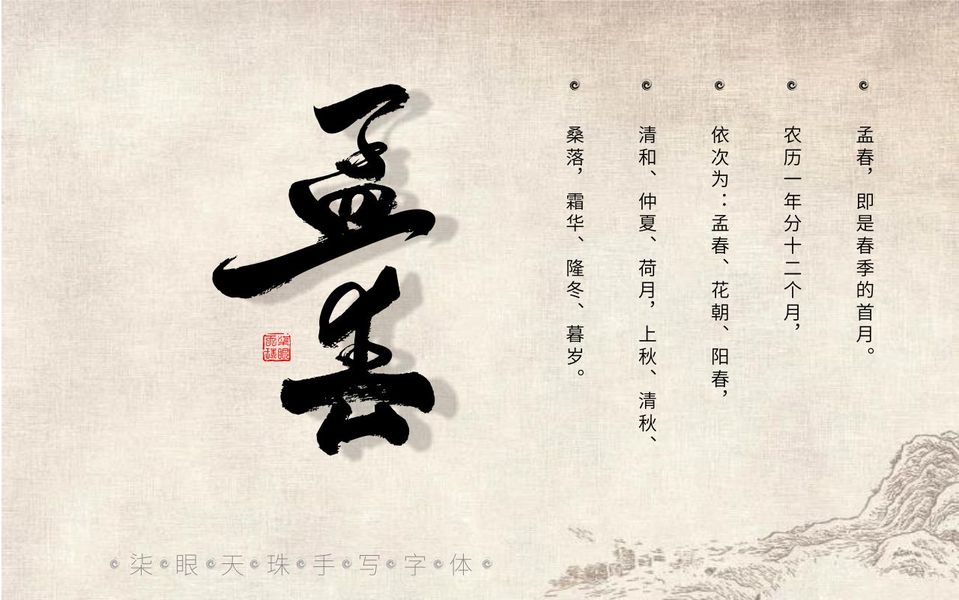 孟春
孟春，即是春季的首月。
农历一年分十二个月，
依次为：孟春、花朝、阳春，
清和、仲夏、荷月，上秋、清秋、
桑落，霜华、隆冬、暮岁。
柒眼天珠
柒眼天珠手写字体